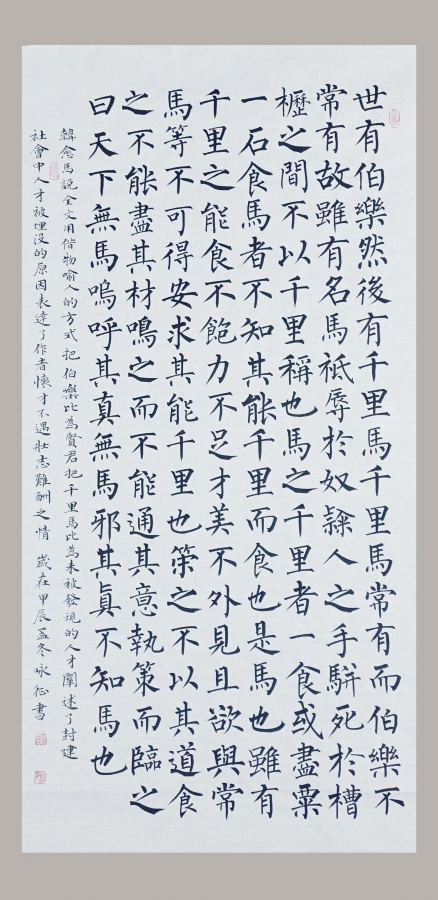 世有伯樂然後有千里馬千里馬常有而伯樂不
常有故雖有名馬祗辱於奴隸人之手駢死於槽
櫪之間不以千里稱也馬之千里者一食或盡粟
一石食馬者不知其能千里而食也是馬也雖有
千里之能食不飽力不足才美不外見且欲與常
馬等不可得安求其能千里也策之不以其道食
之不能盡其材鳴之而不能通其意執策而臨之
曰天下無馬嗚呼其真無馬邪其眞不知馬也
韓愈馬説全文用借物喻人的方式把伯樂比為賢君把千里馬比為未被發現的人才闡述了封建
社會中人才被埋没的原因表達了作者懷才不遇壯志難酬之情 歲在甲辰孟冬咏征書